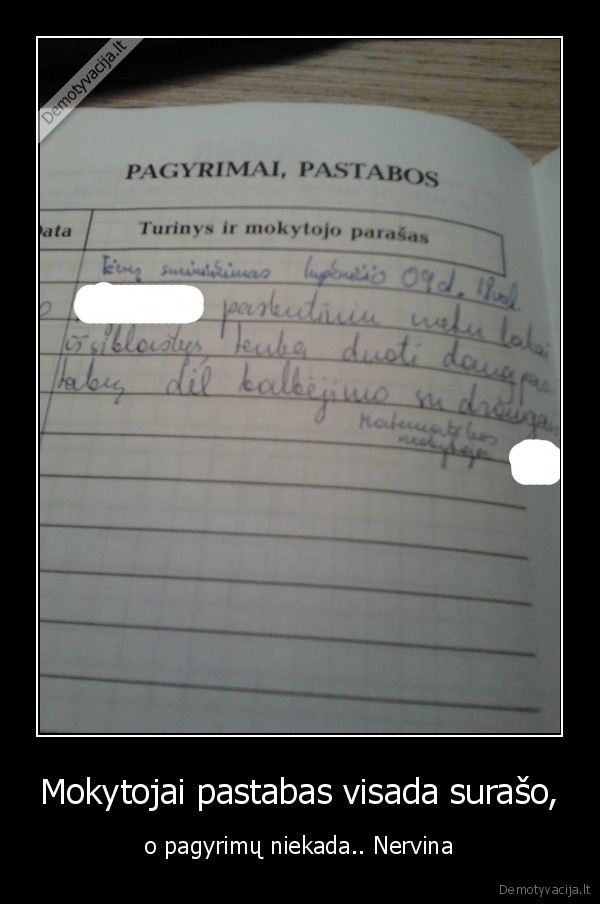 Demotyvacija.lt
PAGYRIMAI, PASTABOS
Data
Turinys ir mokytojo parašas
Tėvų susirinkimas lapkričio 09 d. 18 val.
paskutiniu metu labai
išsiblaškęs, tenka duoti daug pas-
tabų dėl kalbėjimo su draugais
Matematikos
mokytoja
Mokytojai pastabas visada surašo,
o pagyrimų niekada.. Nervina
Demotyvacija.lt